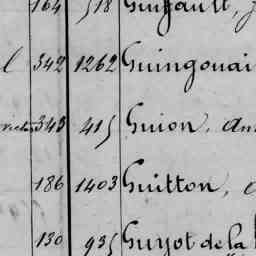 164 518 Guiffault,
l 342 1262 Guingouai
343 415 Guion, am
186 1403 Guitton,
130 935 Guyot de la